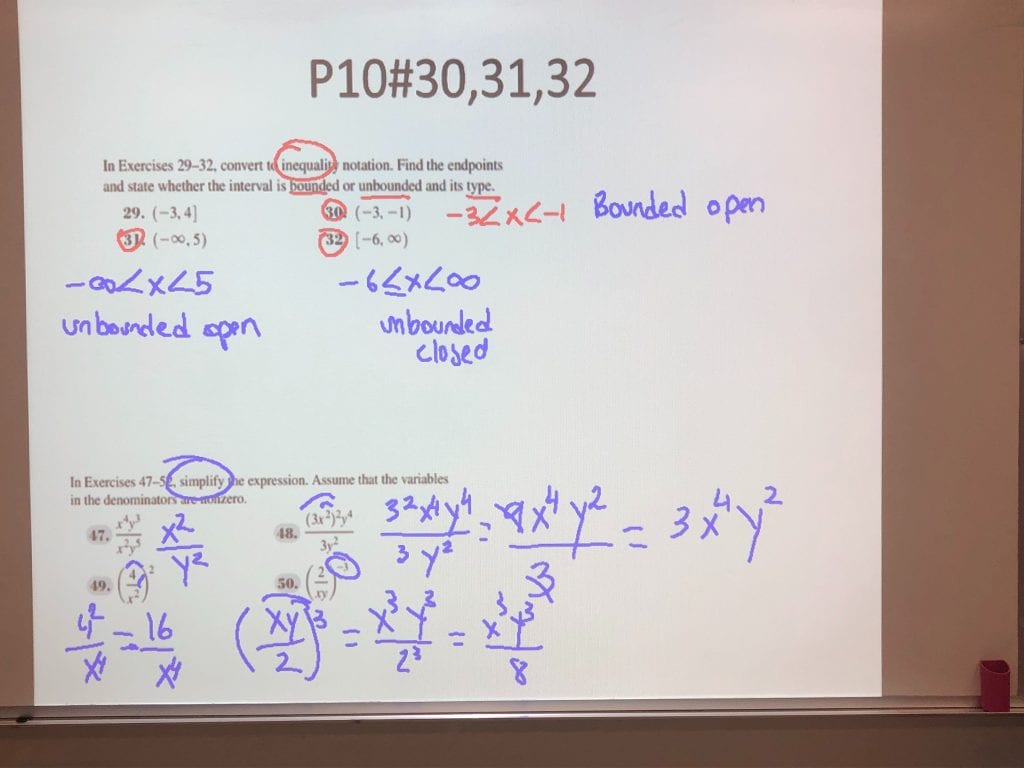 P10#30,31,32
In Exercises 29–32, convert to inequality notation. Find the endpoints
and state whether the interval is bounded or unbounded and its type.
29. (−3, 4] 30. (−3, −1) -3<x<-1 Bounded open
31. (−∞, 5) 32. [−6, ∞)
-∞<x<5 -6≤x<∞
unbounded open unbounded
closed
In Exercises 47–52, simplify the expression. Assume that the variables
in the denominators are nonzero.
47. x⁴y³/x²y⁵ x²/y² 48. (3x²)²y⁴/3y² 3²x⁴y⁴/3y² = 9x⁴y²/3 = 3x⁴y²
49. (4/x²)² 50. (2/xy)⁻³
4²/x⁴ = 16/x⁴ (xy/2)³ = x³y³/2³ = x³y³/8